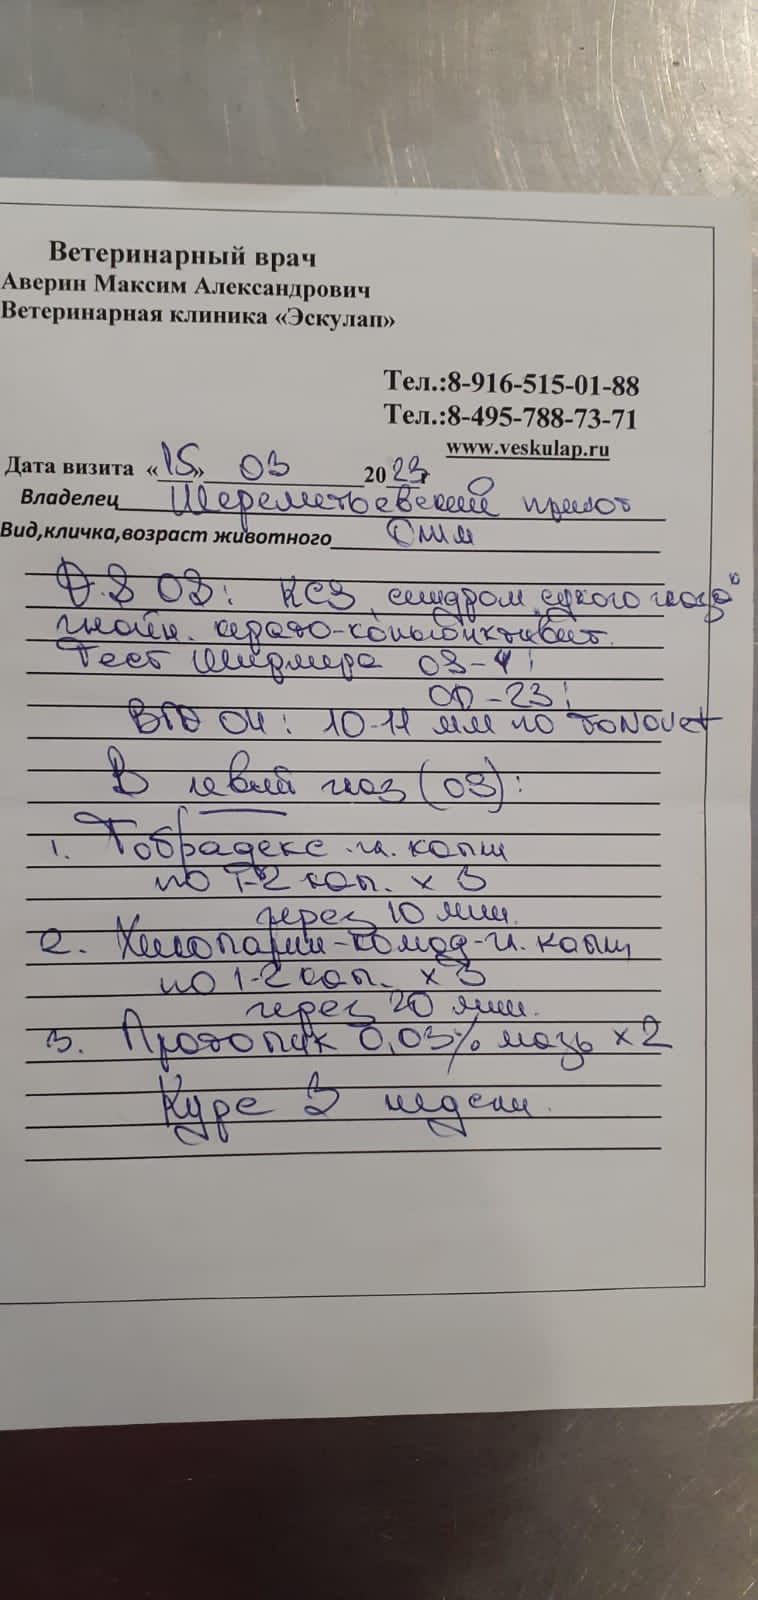 Ветеринарный врач
Аверин Максим Александрович
Ветеринарная клиника «Эскулап»
Тел.:8-916-515-01-88
Тел.:8-495-788-73-71
www.veskulap.ru
Дата визита «15» 03 2023г
Владелец Шереметьевский приют
Вид,кличка,возраст животного
D.S OS: КСЗ, синдром "сухого глаза"
гнойн. керато-конъюнктивит.
Тест Ширмера OS-4!
OD-23!
ВГД OU: 10-11 мм по Tonovet
В левый глаз (OS):
1. Тобрадекс гл. капли
по 1-2 кап. x 3
через 10 мин.
2. Хилопарин-комод-гл. капли
по 1-2 кап. x 3
через 20 мин.
3. Протопик 0,03% мазь x 2
Курс 3 недели.